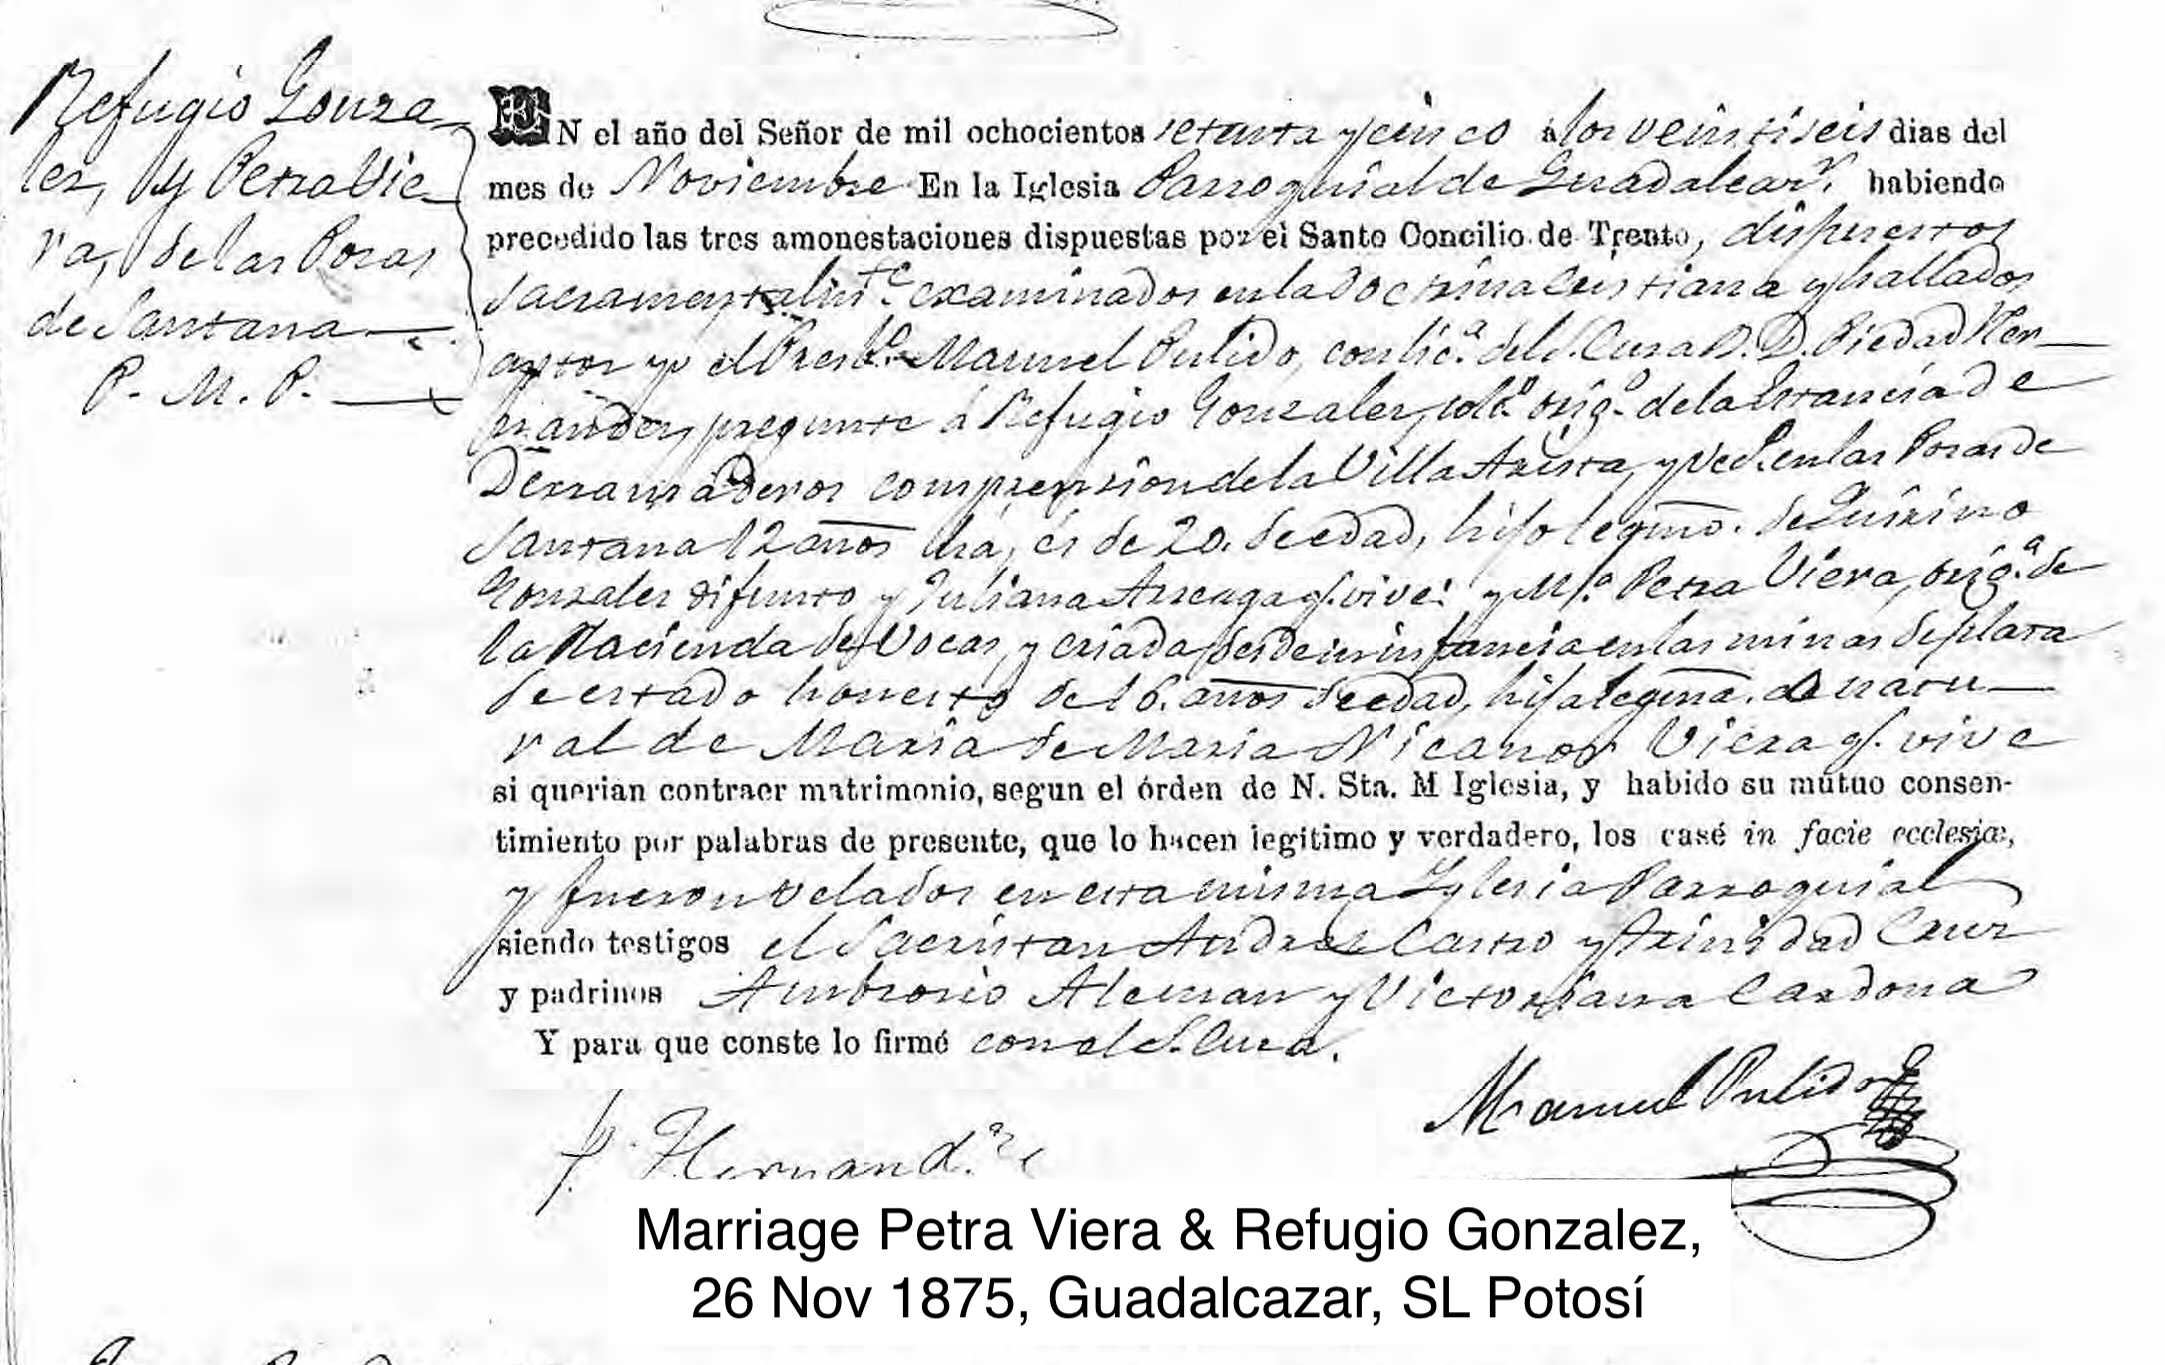 Refugio Gonza
les, y Petra Vie
ra, de las Posas
de Santana
P. M. P.
EN el año del Señor de mil ochocientos setenta y cinco a los veintiseis dias del
mes de Noviembre En la Iglesia Parroquial de Guadalcazr. habiendo
precedido las tres amonestaciones dispuestas por el Santo Concilio de Trento, dispuestos
sacramentalmte. examinados en la doctrina cristiana y hallados
aptos yo el Presbo. Manuel Pulido, con lica. del S. Cura D. D. Piedad Her
nandes, pregunte á Refugio Gonzales, solo. origo. de la Estancia de
Derramaderos comprension de la Villa Arista, y vec. en las Posas de
Santana 12 años há, es de 20. de edad, hijo legmo. de Quirino
Gonzales difunto y Juliana Arreaga q. vive: y Ma. Petra Viera, origa. de
la Hacienda de Bocas, y criada desde su infancia en las minas de plata
de estado honesto de 16. años de edad, hija legma. de natu
ral de Maria de Maria Nicanor Viera q. vive
si querian contraer matrimonio, segun el órden de N. Sta. M Iglesia, y habido su mútuo consen-
timiento por palabras de presente, que lo hacen legitimo y verdadero, los casé in facie ecclesiæ,
y fueron velados en esta misma Iglesia Parroquial
siendo testigos el Sacristan Andres Castro y Trinidad Cruz
y padrinos Ambrosio Aleman y Victoriana Cardona
Y para que conste lo firmé con el S. Cura.
Manuel Pulido
P. Hernandz
Marriage Petra Viera & Refugio Gonzalez,
26 Nov 1875, Guadalcazar, SL Potosí